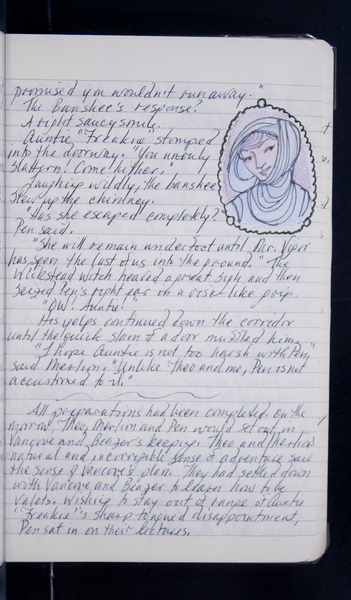 promised you wouldn't run away."
The Banshee's response?
A right saucy smile.
Auntie "Freakie" stomped
into the doorway. "You unruly
slattern! Come hither."
Laughing wildly, the banshee
flew up the chimney.
"Has she escaped completely?"
Pen said.
"She will remain underfoot until Mr. Viper
has seen the last of us into the ground." The
Wickstead Witch heaved a great sigh and then
seized Pen's right ear in a vise-like grip.
"OW! Auntie!"
His yelps continued down the corridor
until the quick slam of a door muffled him.
"I hope Auntie is not too harsh with Pen,"
said Merlin. "Unlike Theo and me, Pen is not
accustomed to it."
All preparations had been completed. On the
morrow, Theo, Merlin and Pen would set out in
and keeping. Theo and Merlin's
natural and incorrigible sense of adventure saw
the sense of plan. They had settled down
with and to learn how to be
valets. Wishing to stay out of range of Auntie
"Freakie"'s sharp tongued disappointment,
Pen sat in on their lectures.